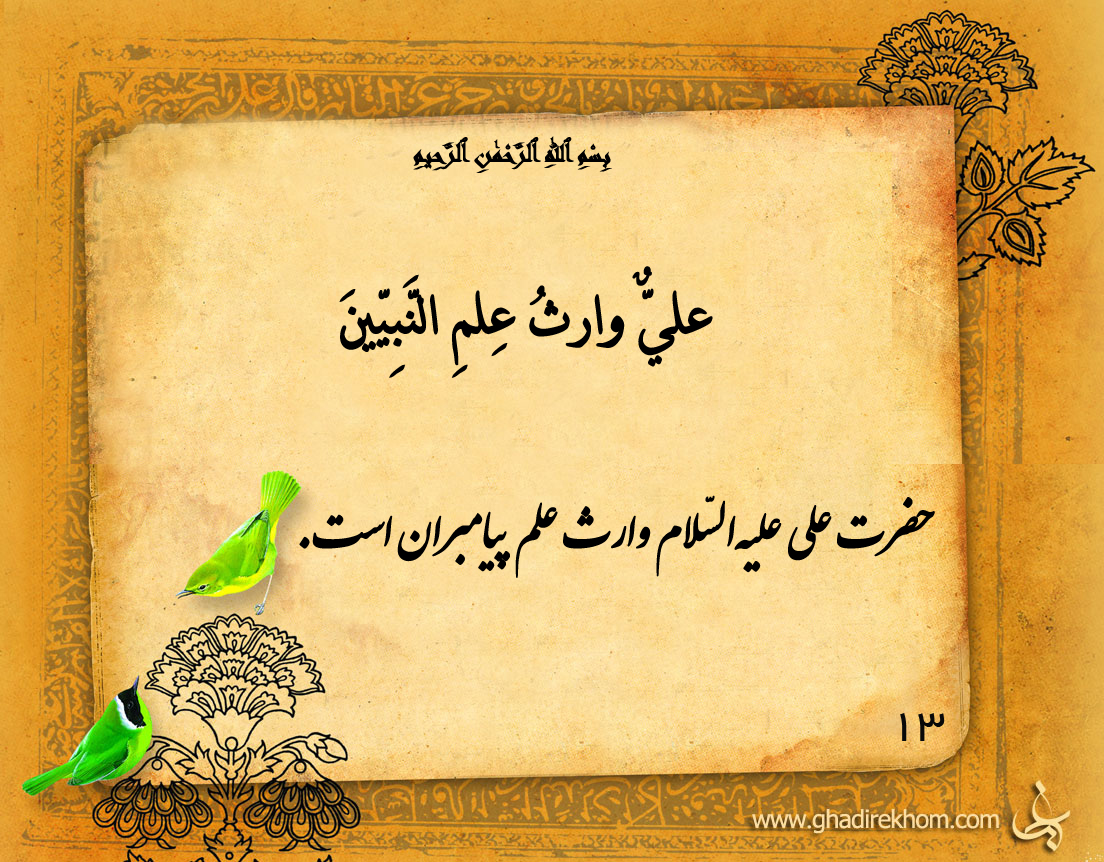 بِسْمِ ٱللَّهِ ٱلرَّحْمَٰنِ ٱلرَّحِيمِ
عليٌّ وارثُ عِلمِ النَّبِيّينَ
حضرت علی علیه السّلام وارث علم پیامبران است.
۱۳
www.ghadirekhom.com